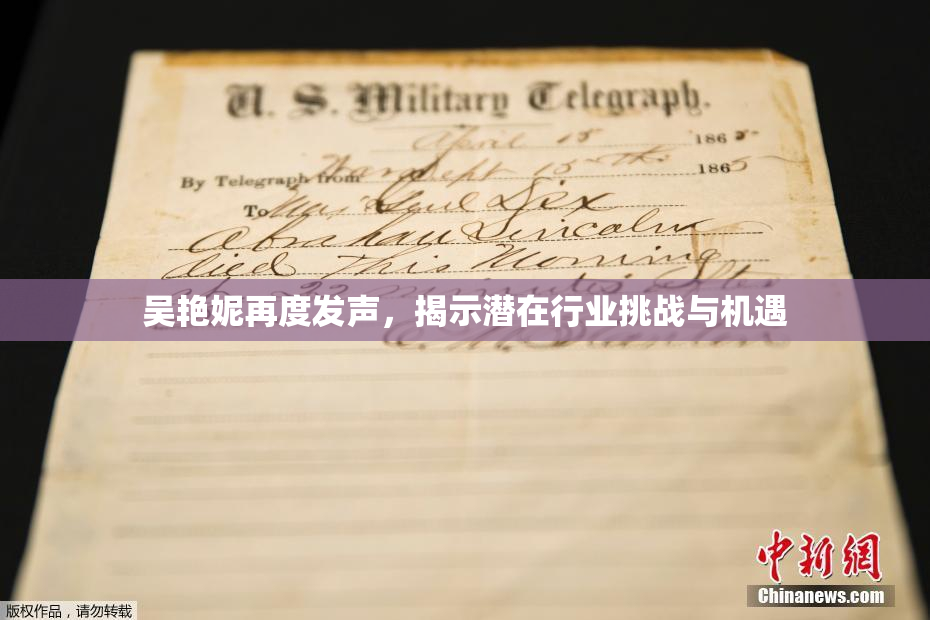 U. S. Military Telegraph.
April 15 1865
By Telegraph from War Dept 15th 1865
To Maj Genl Dix
Abraham Lincoln
died This Morning
at 22 minutes after
吴艳妮再度发声，揭示潜在行业挑战与机遇
E. M. Stanton
中新网
Chinanews.com
版权作品，请勿转载